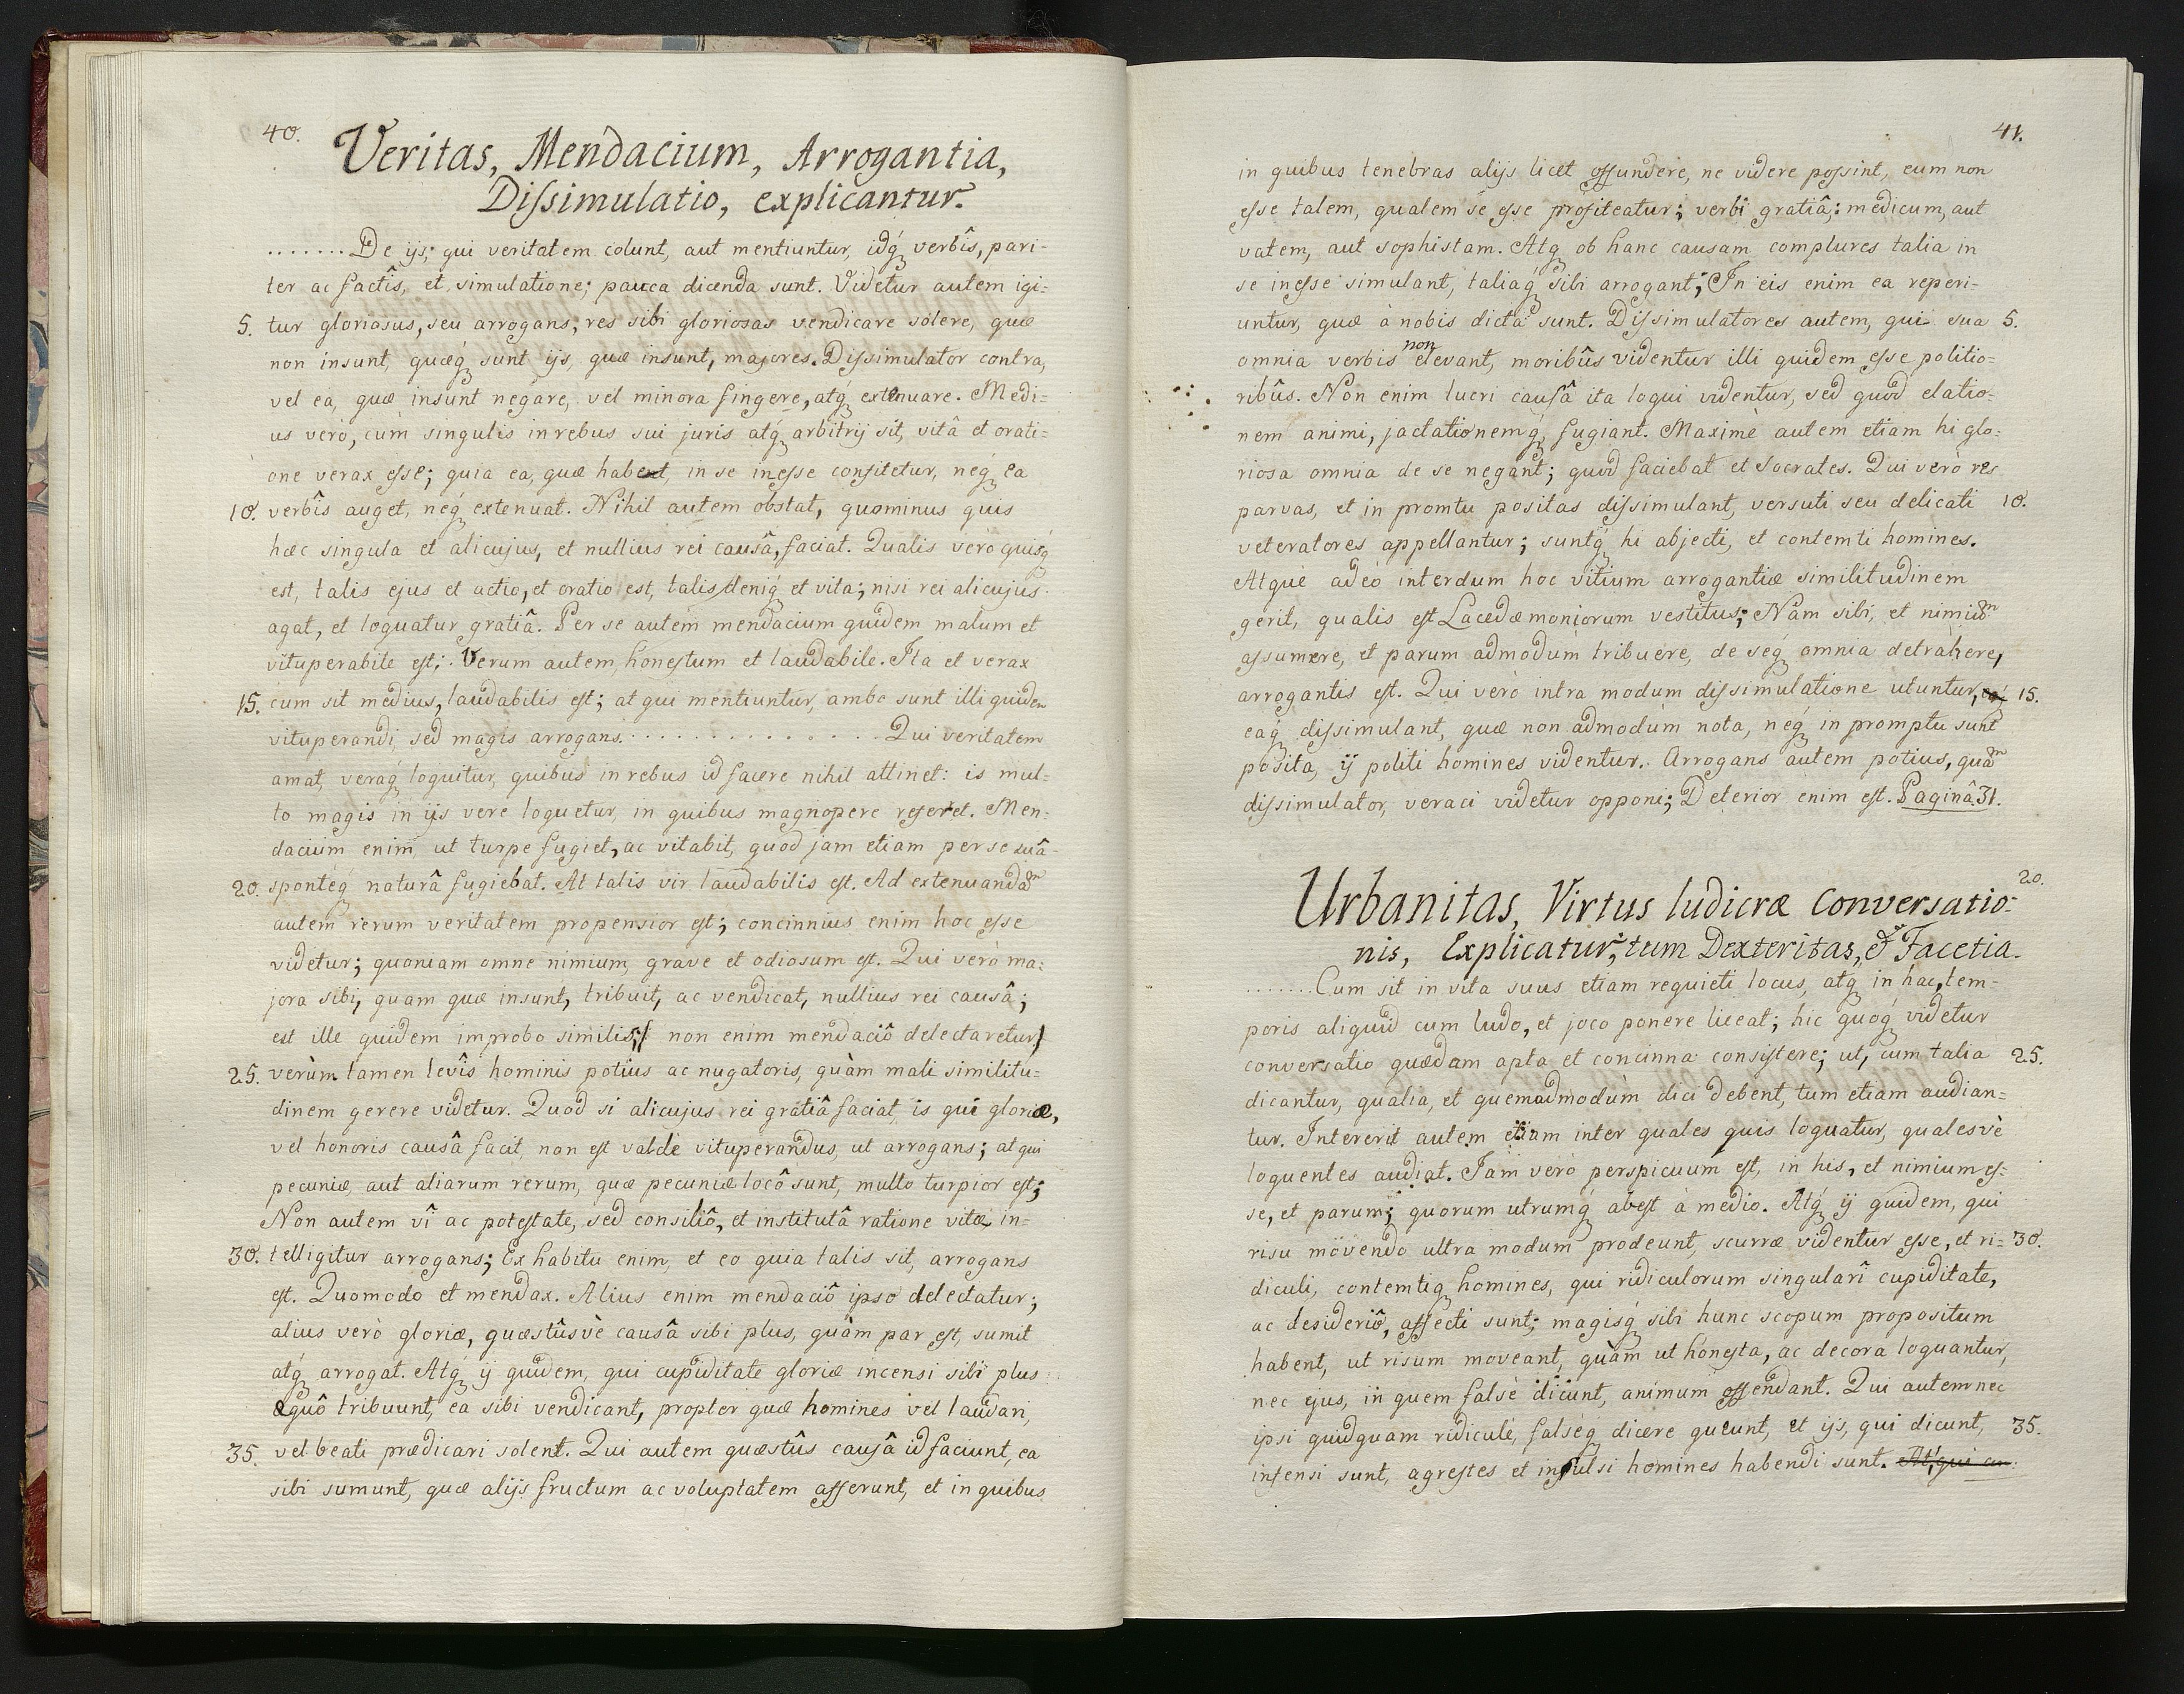 40.
Veritas, Mendacium, Arrogantia,
Dissimulatio, explicantur.
.......De ijs, qui veritatem colunt, aut mentiuntur, idq́ verbîs, pari-
ter ac factîs, et simulatione; pauca dicenda sunt. Videtur autem igi-
5. tur gloriosus, seu arrogans, res sibi gloriosas vendicare solere, quæ
non insunt, quæq́ sunt ijs, quæ insunt, majores. Dissimulator contra,
vel ea, quæ insunt negare, vel minora fingere, atq́ extenuare. Medi-
us verò, cùm singulis in rebus sui juris atq́ arbitrij sit, vitâ et orati-
one verax esse; quia ea, quæ habent, in se inesse confitetur, neq́ ea
10. verbîs auget, neq́ extenuat. Nihil autem obstat, quominus quis
hæc singula et alicujus, et nullius rei causâ, faciat. Qualis verò quisq́
est, talis ejus et actio, et oratio est, talis deniq́ et vita; nisi rei alicujus
agat, et loquatur gratiâ. Per se autem mendacium quidem malum et
vituperabile est; Verum autem, honestum et laudabile. Ita et verax
15. cum sit medius, laudabilis est; at qui mentiuntur, ambo sunt illi quidem
vituperandi, sed magis arrogans. . . . . . . . . . . . . . Qui veritatem
amat, veraq́ loquitur, quibus in rebus id facere nihil attinet: is mul-
to magis in ijs vere loquetur, in quibus magnopere referet. Men-
dacium enim, ut turpe fugiet, ac vitabit, quod jam etiam per se suâ
20. sponteq́ naturâ fugiebat. At talis vir laudabilis est. Ad extenuandam
autem rerum veritatem propensior est; concinnius enim hoc esse
videtur; quoniam omne nimium, grave et odiosum est. Qui verò ma-
jora sibi, quam quæ insunt, tribuit, ac vendicat, nullius rei causâ;
est ille quidem improbo similis;( non enim mendaciô delectaretur)
25. verùm tamen levîs hominis potius ac nugatoris, quàm mali similitu-
dinem gerere videtur. Quod si alicujus rei gratiâ faciat, is qui gloriæ,
vel honoris causâ facit, non est valde vituperandus, ut arrogans; at qui
pecuniæ, aut aliarum rerum, quæ pecuniæ locô sunt, multo turpior est;
Non autem vî ac potestate, sed consiliô, et institutâ ratione vitæ in-
30. telligitur arrogans; Ex habitu enim, et eo quia talis sit, arrogans
est. Quomodo et mendax. Alius enim mendaciô ipso delectatur;
alius verò gloriæ, quæstûsvè causâ sibi plus, quàm par est, sumit
atq́ arrogat. Atq́ ij quidem, qui cupiditate gloriæ incensi sibi plus
æquô tribuunt, ea sibi vendicant, propter quæ homines vel laudari,
35. vel beati prædicari solent. Qui autem quæstûs causâ id faciunt, ea
sibi sumunt, quæ alijs fructum ac voluptatem afferunt, et in quibus
41.
in quibus tenebras alijs licet offundere, ne videre possint, eum non
esse talem, qualem se esse profiteatur; verbi gratiâ: medicum, aut
vatem, aut sophistam. Atq́ ob hanc causam complures talia in
se inesse simulant, taliaq́ sibi arrogant; In eis enim ea reperi-
untur, quæ à nobis dicta sunt. Dissimulatores autem, qui sua 5.
omnia verbis non elevant, moribûs videntur illi quidem esse politio-
ribûs. Non enim lucri causâ ita loqui videntur, sed quod elatio-
nem animi, jactationemq́ fugiant. Maximè autem etiam hi glo-
riosa omnia de se negant; quod faciebat et Socrates. Qui verò res
parvas, et in promtu positas dissimulant, versuti seu delicati 10.
veteratores appellantur; suntq́ hi abjecti, et contemti homines.
Atquè adeò interdum hoc vitium arrogantiæ similitudinem
gerit, qualis est Lacedæmoniorum vestitus; Nam sibi, et nimium
assumere, et parum admodùm tribuere, de seq́ omnia detrahere,
arrogantis est. Qui verò intra modum dissimulatione utuntur, eaq́ 15.
eaq́ dissimulant, quæ non admodùm nota, neq́ in promptu sunt
posita, ij politi homines videntur. Arrogans autem potius, quam
dissimulator, veraci videtur opponi; Deterior enim est. Paginâ 31.
20.
Urbanitas, Virtus ludicræ Conversatio-
nis, Explicatur; tum Dexteritas, & Facetia.
.......Cum sit in vita suus etiam requieti locus, atq́ in hac, tem-
poris aliquid cum ludo, et joco ponere liceat; hic quoq́ videtur
conversatio quædam apta et concinna consistere; ut, cum talia 25.
dicantur, qualia, et quemadmodùm dici debent, tum etiam audian-
tur. Intererit autem etiam inter quales quis loquatur, qualesvè
loquentes audiat. Jam verò perspicuum est, in his, et nimium es-
se, et parum; quorum utrumq́ abest à medio. Atq́ ij quidem, qui
risu movendo ultra modum prodeunt, scurræ videntur esse, et ri- 30.
diculi, contemtiq́ homines, qui ridiculorum singulari cupiditate,
ac desideriô, affecti sunt; magisq́ sibi hunc scopum propositum
habent, ut risum moveant, quàm ut honesta, ac decora loquantur,
nec ejus, in quem falsè dicunt, animum offendant. Qui autem nec
ipsi quidquam ridiculè, falsèq́ dicere queunt, et ijs, qui dicunt, 35.
infensi sunt, agrestes et insulsi homines habendi sunt. At, qui